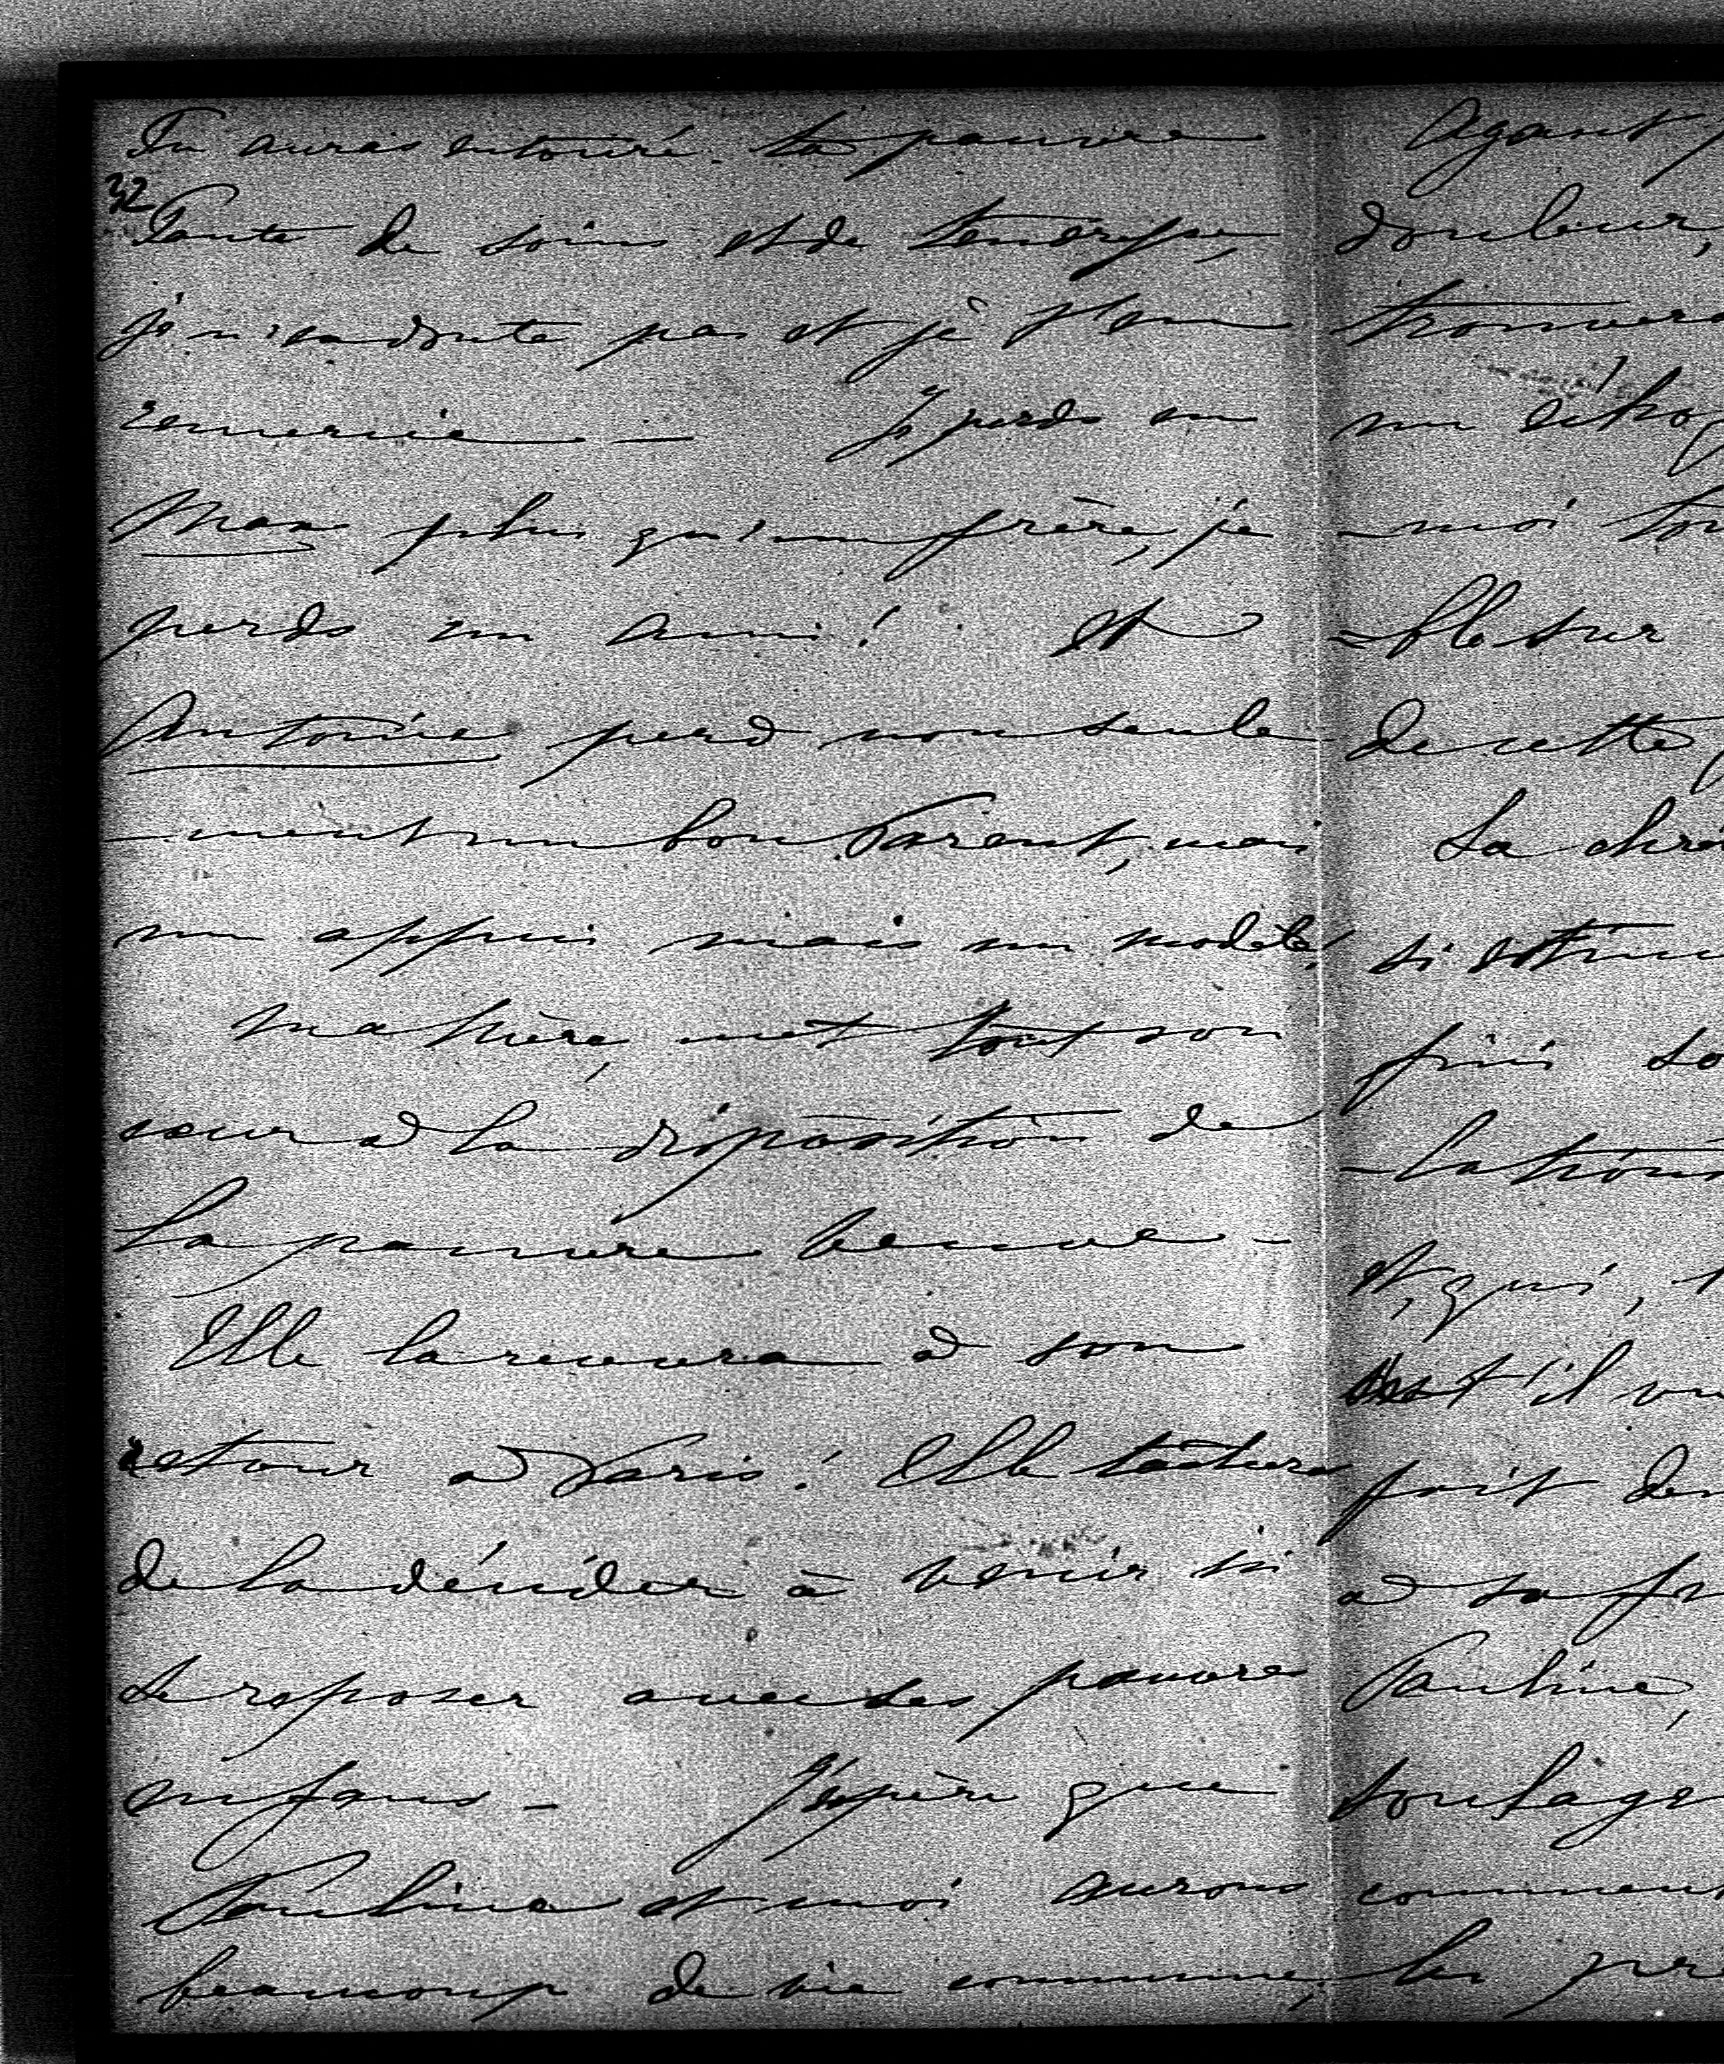 Tu auras entouré ta pauvre
32
Tante de soins et de tendresse,
je n'en doute pas et je t'en
remercie — Je perds en
Max plus qu'un frère, je
perds un ami! Et
Antoine perd non seule
-ment un bon Parent, mais
un appui mais un modèle!
Ma Mère, met tout son
cœur à la disposition de
la pauvre veuve -
Elle la recevra à son
retour à Paris! Elle tachera
de la décider à venir ici
se reposer avec ses pauvres
enfans - J'espère que
Pauline et moi aurons
beaucoup de vie commune,
Ayant
douleur,
trouvera
un
-moi
-ble sur
de cette
La
si
fini
-lations
et, qui,
est-il
fait
à sa
Pauline,
soulage
comment
la